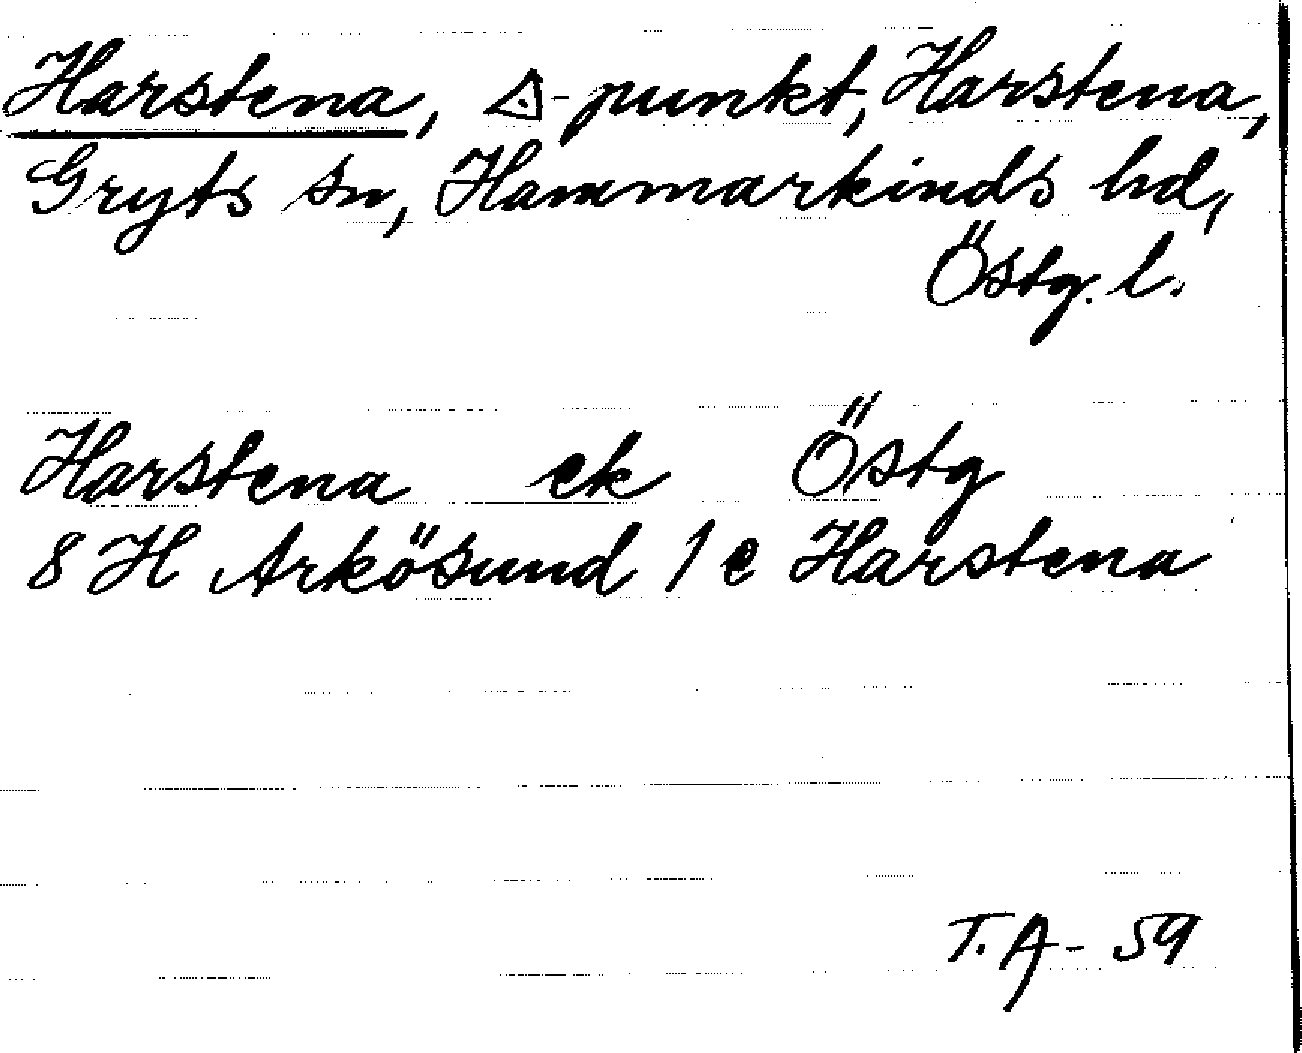 Harstena, ⟁-punkt, Harstena,
Gryts sn, Hammarkinds hd,
Östg. l.
Harstena ek Östg
8 H Arkösund 1 e Harstena
T.A - 59